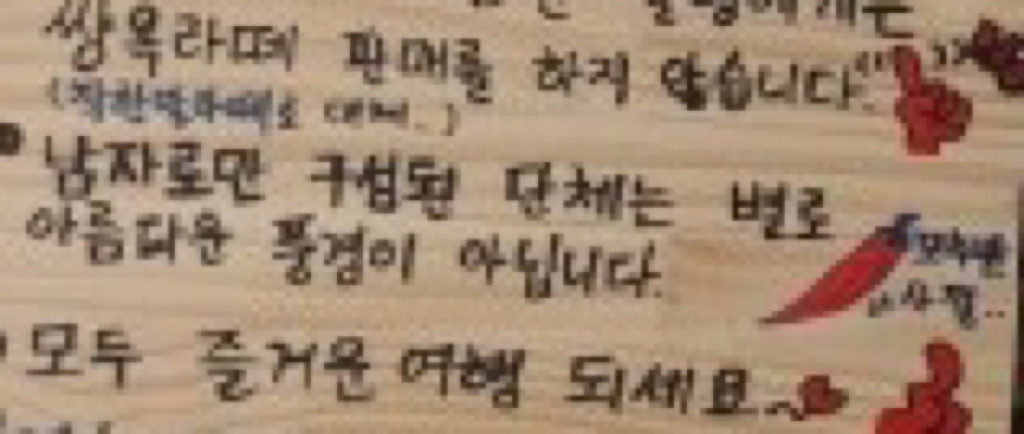 쌍욕라떼 판매를 하지 않습니다.
(착한말라떼로 대체..)
남자로만 구성된 단체는 별로
아름다운 풍경이 아닙니다.
모두 즐거운 여행 되세요~